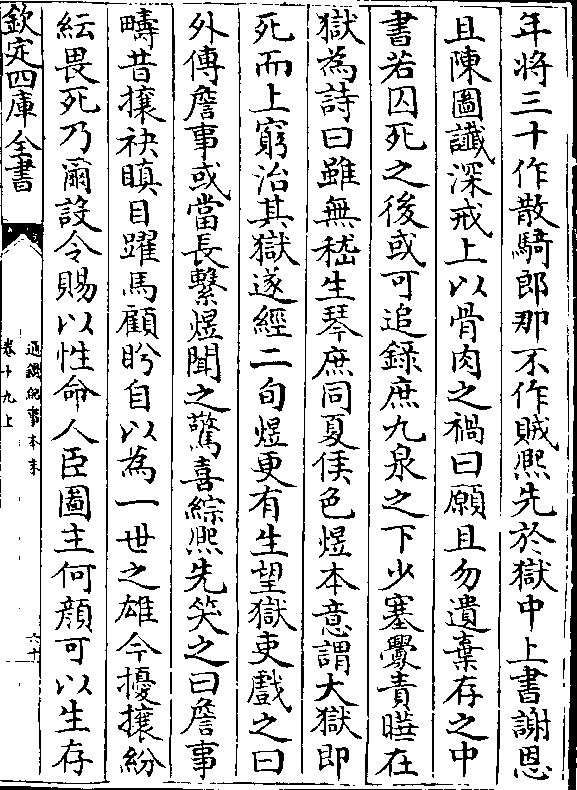 年將三十作散騎郎那不作賊熙先於獄中上書謝恩
且陳圖讖深戒上以骨肉之禍曰願且勿遺棄存之中
書若囚死之後或可追録庶九泉之下少塞釁責曄在
獄為詩曰雖無嵇生琴庶同夏侯色煜本意謂大獄即
死而上窮治其獄遂經二旬煜更有生望獄吏戲之曰
外傳詹事或當長繫煜聞之驚喜綜熙先笑之曰詹事
疇昔攘袂瞋目躍馬顧盼自以為一世之雄今擾攘紛
紜畏死乃爾設令賜以性命人臣圖主何顔可以生存
欽定四庫全書
通鑑紀事本末
卷十九上
六十